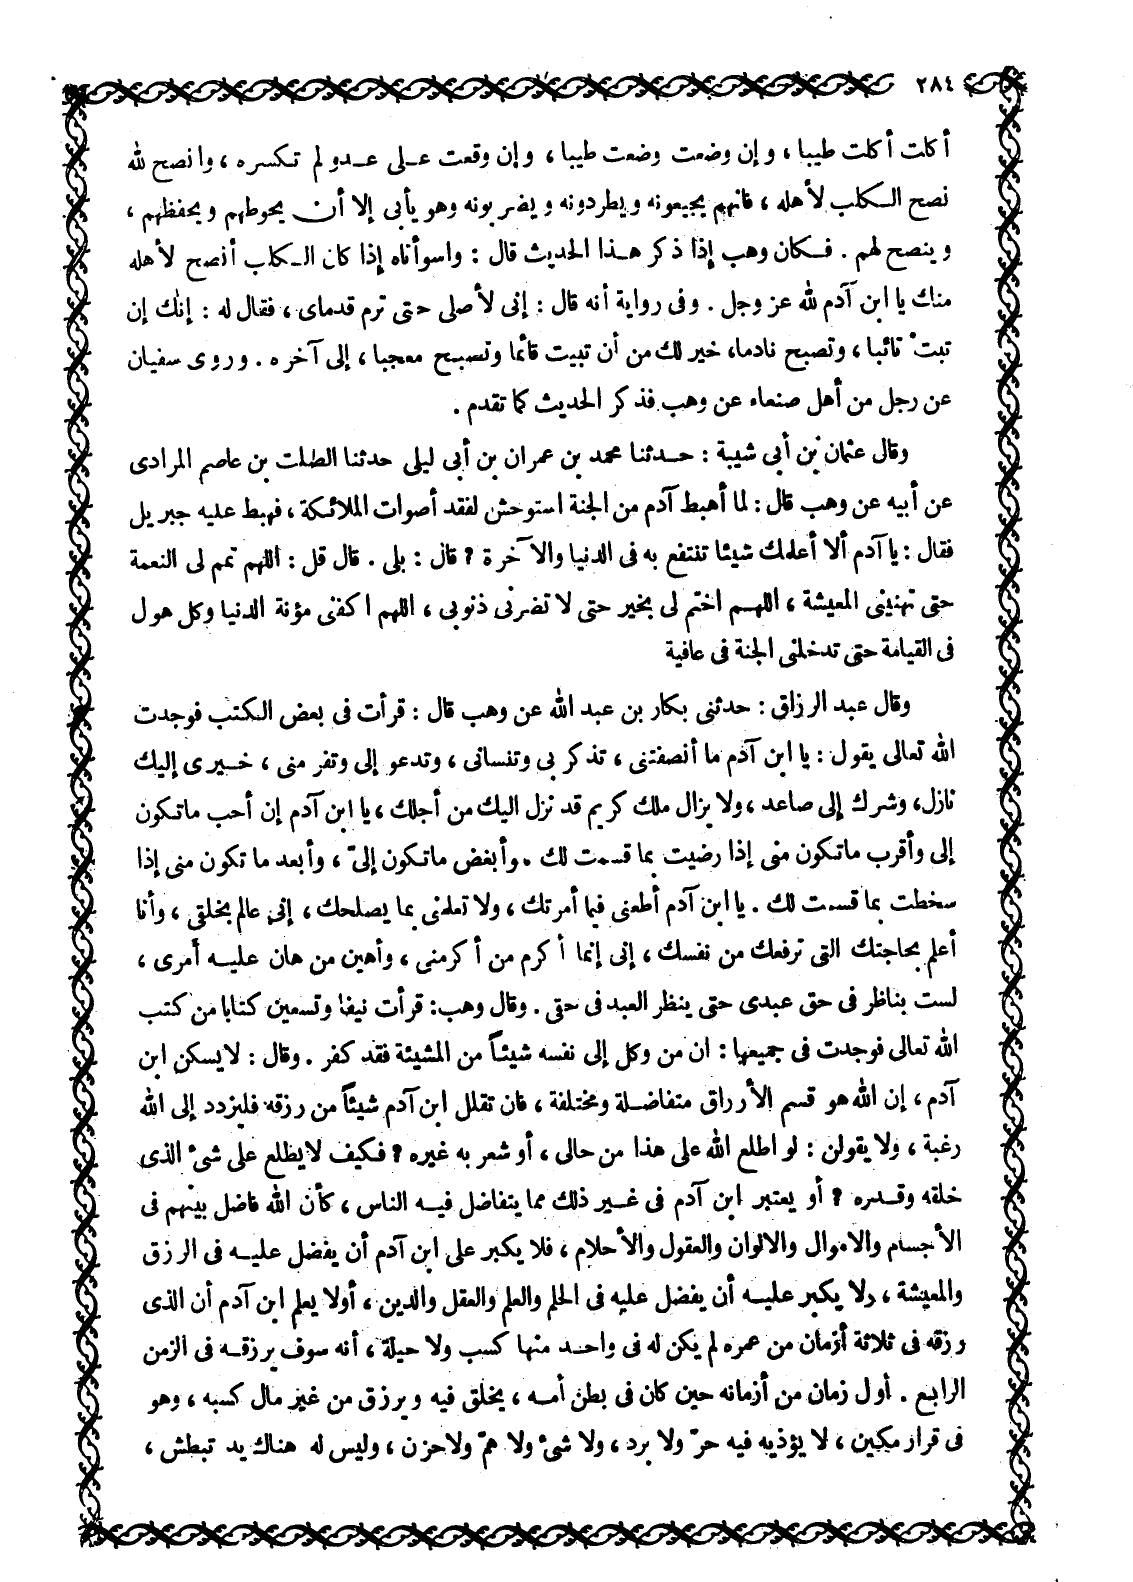 ٢٨٤
أكلت أكلت طيبا ، وإن وضعت وضعت طيبا ، وإن وقعت على عدو لم تكسره ، وانصح لله
نصح الكلب لأهله ، فانهم يجيعونه ويطردونه ويضربونه وهو يأبى إلا أن يحوطهم ويحفظهم ،
وينصح لهم . فكان وهب إذا ذكر هذا الحديث قال : واسوأتاه إذا كان الكلب أنصح لأهله
منك يا ابن آدم لله عز وجل . وفى رواية أنه قال : إنى لأصلى حتى ترم قدماى ، فقال له : إنك إن
تبت تائبا ، وتصبح نادما، خير لك من أن تبيت قائما وتصبح معجبا ، إلى آخره . وروى سفيان
عن رجل من أهل صنعاء عن وهب فذكر الحديث كما تقدم .
وقال عثمان بن أبى شيبة : حدثنا محمد بن عمران بن أبى ليلى حدثنا الطلت بن عاصم المرادى
عن أبيه عن وهب قال : لما أهبط آدم من الجنة استوحش لفقد أصوات الملائكة ، فهبط عليه جبريل
فقال : يا آدم ألا أعلمك شيئا تنتفع به فى الدنيا والآخرة ؟ قال : بلى . قال قل : اللهم تمم لى النعمة
حتى تهنينى المعيشة ، اللهم اختم لى بخير حتى لا تضرنى ذنوبى ، اللهم اكفنى مؤنة الدنيا وكل هول
فى القيامة حتى تدخلنى الجنة فى عافية
وقال عبد الرزاق : حدثنى بكار بن عبد الله عن وهب قال : قرأت فى بعض الكتب فوجدت
الله تعالى يقول : يا ابن آدم ما أنصفتنى ، تذكر بى وتنسانى ، وتدعو إلى وتفر منى ، خيرى إليك
نازل، وشرك إلى صاعد ، ولا يزال ملك كريم قد نزل اليك من أجلك ، يا ابن آدم إن أحب ماتكون
إلى وأقرب ماتكون منى إذا رضيت بما قسمت لك . وأبغض ماتكون إلىّ ، وأبعد ما تكون منى إذا
سخطت بما قسمت لك . يا ابن آدم أطعنى فيما أمرتك ، ولا تعلمنى بما يصلحك ، إنى عالم بخلقى ، وأنا
أعلم بحاجتك التى ترفعك من نفسك ، إنى إنما أكرم من أكرمنى ، وأهين من هان عليه أمرى ،
لست بناظر فى حق عبدى حتى ينظر العبد فى حقى . وقال وهب: قرأت نيفا وتسعين كتابا من كتب
الله تعالى فوجدت فى جميعها : ان من وكل إلى نفسه شيئاً من المشيئة فقد كفر . وقال : لايسكن ابن
آدم ، إن الله هو قسم الأرزاق متفاضلة ومختلفة ، فان تقلل ابن آدم شيئاً من رزقه فليزدد إلى الله
رغبة ، ولا يقولن : لو اطلع الله على هذا من حالى ، أو شعر به غيره ؟ فكيف لايطلع على شىء الذى
خلقه وقدره ؟ أو يعتبر ابن آدم فى غير ذلك مما يتفاضل فيه الناس ، كأن الله فاضل بينهم فى
الأجسام والاموال والالوان والعقول والأحلام ، فلا يكبر على ابن آدم أن يفضل عليه فى الرزق
والمعيشة ، ولا يكبر عليه أن يفضل عليه فى الحلم والعلم والعقل والدين ، أولا يعلم ابن آدم أن الذى
رزقه فى ثلاثة أزمان من عمره لم يكن له فى واحد منها كسب ولا حيلة ، أنه سوف يرزقه فى الزمن
الرابع . أول زمان من أزمانه حين كان فى بطن أمه ، يخلق فيه ويرزق من غير مال كسبه ، وهو
فى قرار مكين ، لا يؤذيه فيه حرّ ولا برد ، ولا شىء ولا همّ ولا حزن ، وليس له هناك يد تبطش ،